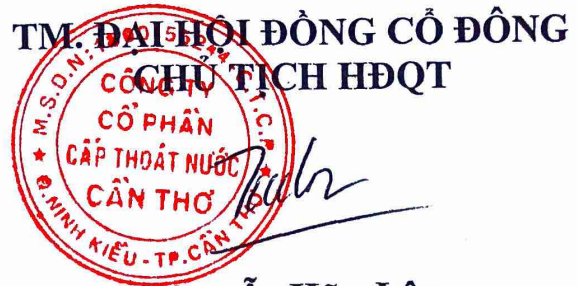 TM. ĐẠI HỘI ĐỒNG CỔ ĐÔNG
CHỦ TỊCH HĐQT
CÔNG TY
CỔ PHẦN
CẤP THOÁT NƯỚC
CẦN THƠ
M.S.D.N:
C.T.C.P
Q.NINH KIỀU - TP.CẦN THƠ